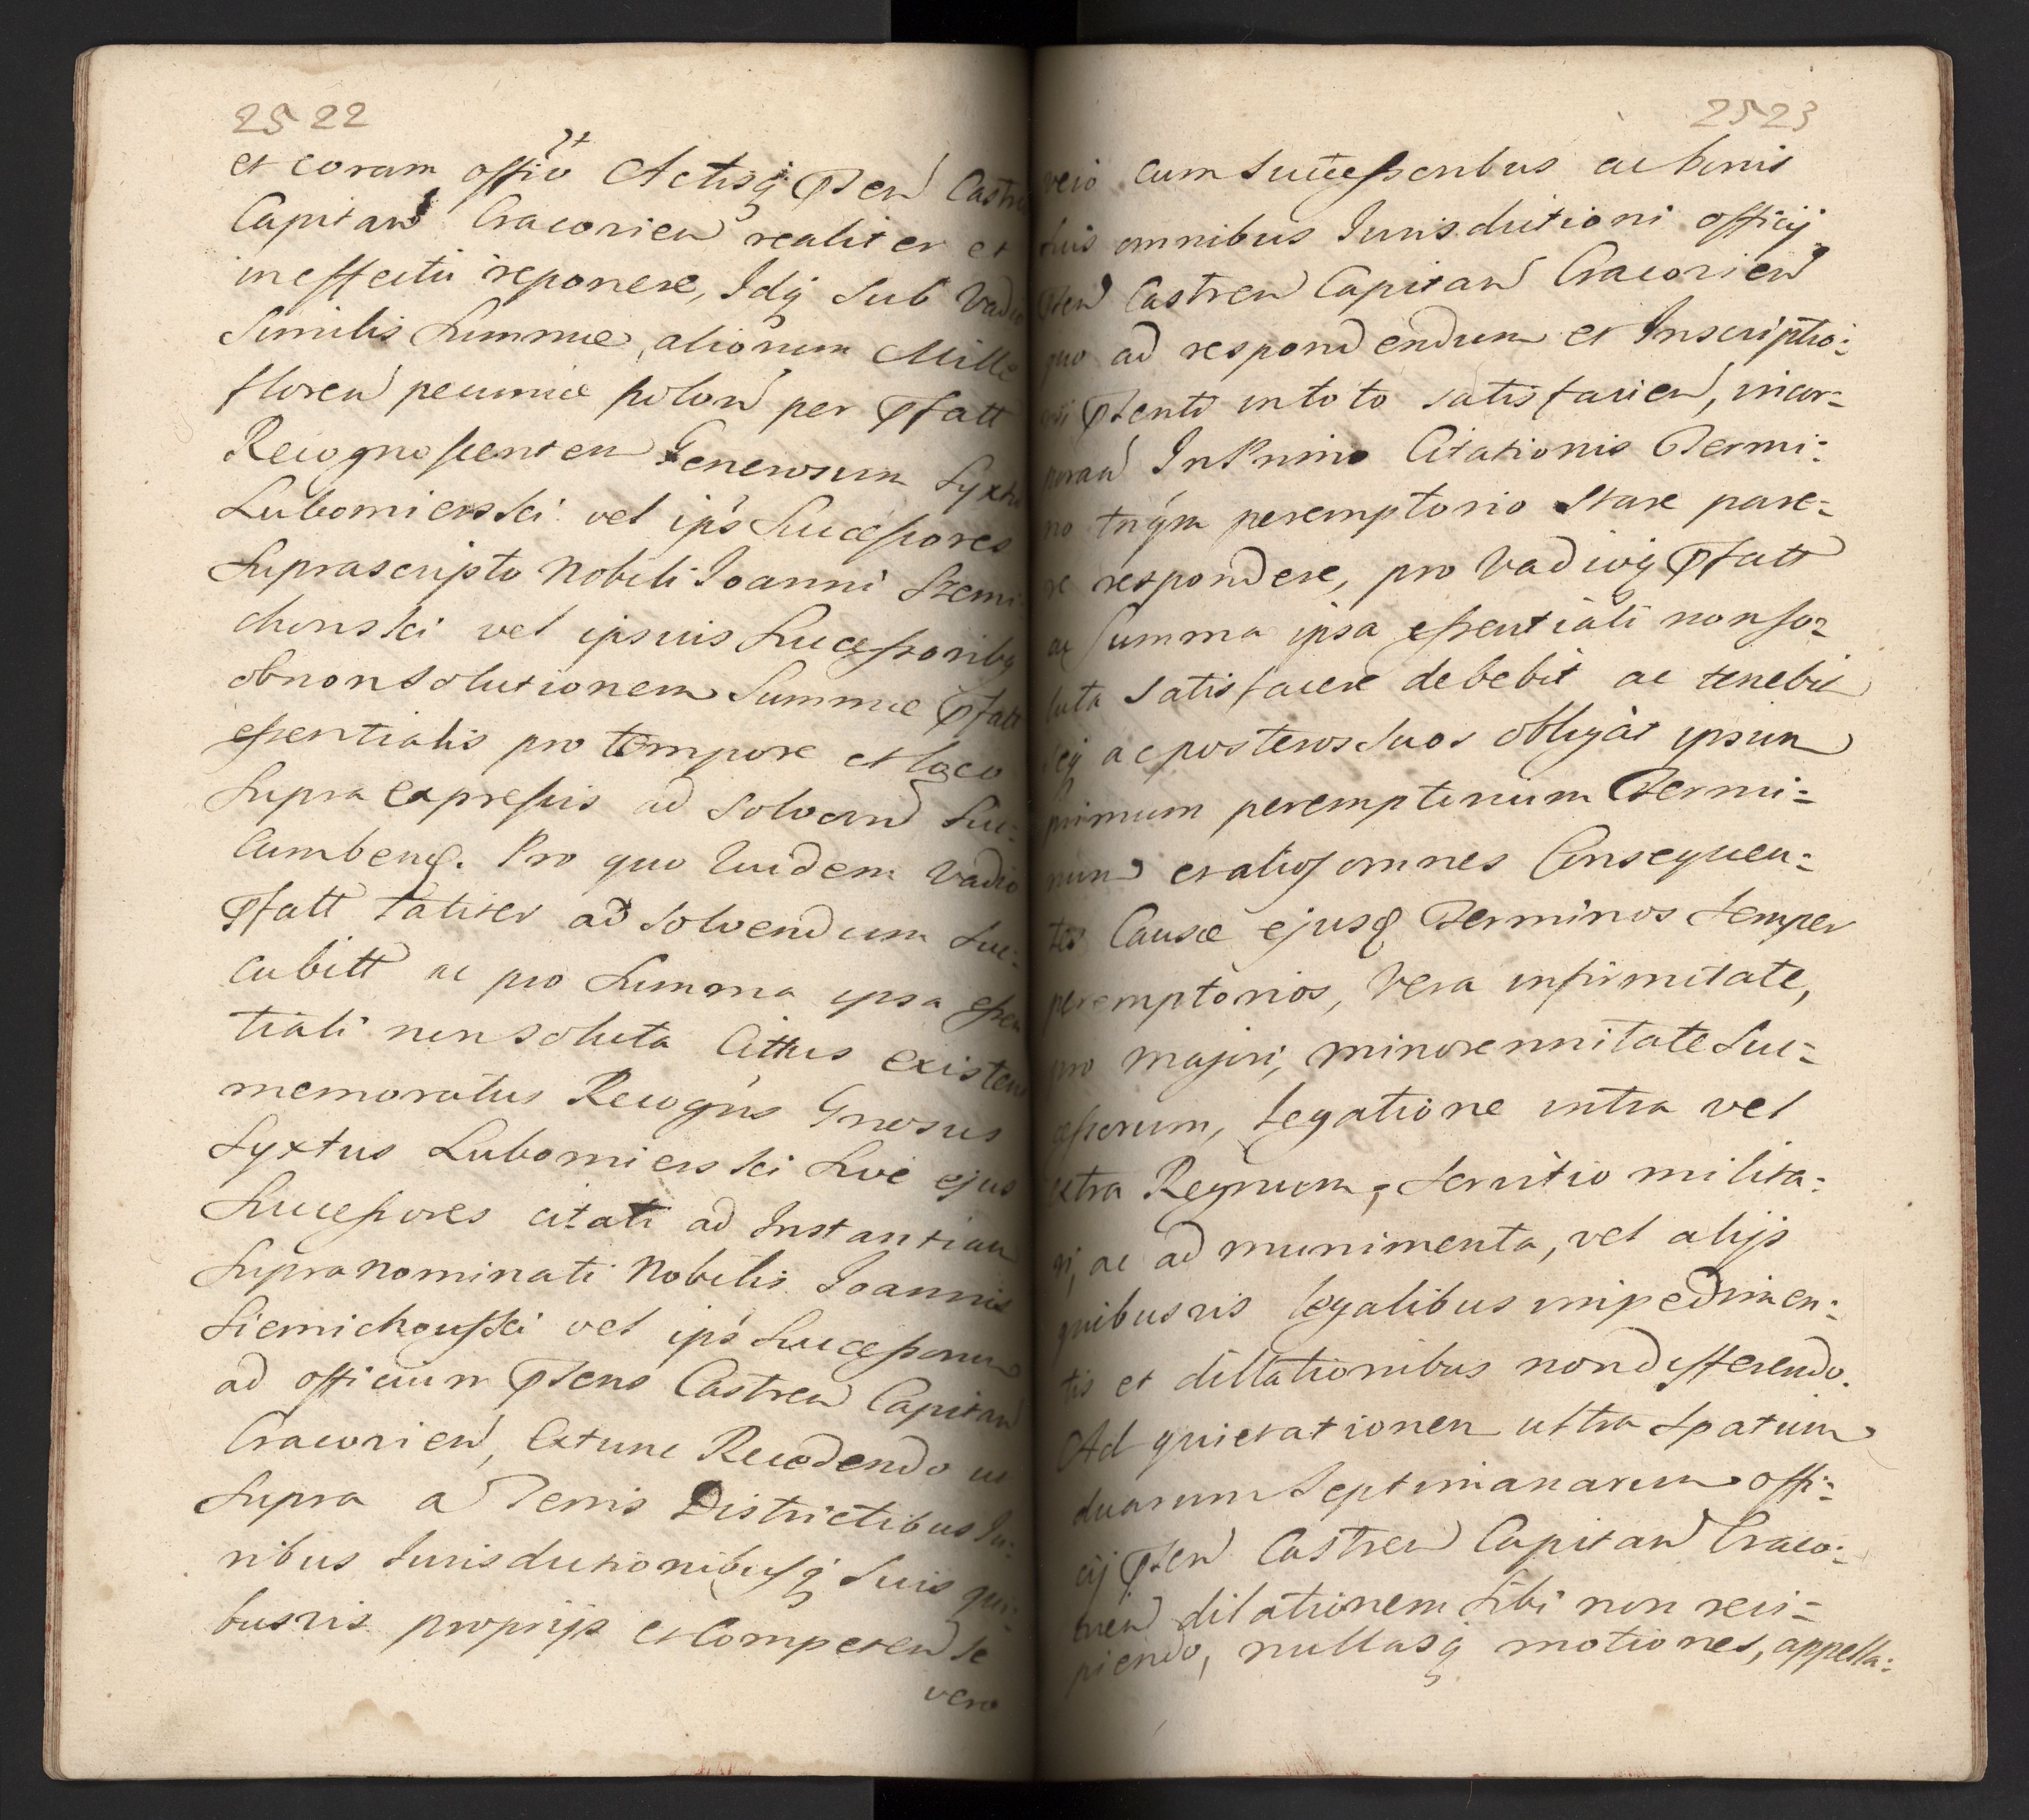 2522
et coram offio Actisq pten Castren
Capitan Cracovien realiter et
in effectu reponere, Idq sub Vadio
Similis Summæ, aliorum Mille
floren pecuniæ polon per pfatt
Recognoscentem Generosum Syxtu
Lubomierski vel ips Successores
Suprascripto Nobili Joanni Szemi
chonski vel ipsius Successoribq
ob non Solutionem Summæ pfatt
essentialis pro tempore et loco
Supra expressis ad Solvend Suc:
cumbens. Pro quo quidem Vadio
pfatt taliter ad Solvendum Suc:
cubitt ac pro Summa ipsa essen
tiali non Soluta Cittus existens
memoratus Recogns Gnosus
Syxtus Lubomierski Sive ejus
Successores citati ad Instantiam
Supranominati Nobilis Joannis
Siemichowski vel ips Successorum
ad officium ptens Castren Capitan
Cracovien, Extunc Recedendo ut
Supra a Terris Districtibus Ju:
ribus Jurisdictionibusq Suis qui:
busvis proprijs et Competen Se
vero
2523
vero cum Successoribus ac bonis
Suis omnibus Jurisdictioni officij
pten Castren Capitan Cracovien
quo ad respondendum et Inscriptio:
ni ptenti in toto satisfacien, incor=
poran In Primo Citationis Termi:
no tnqm peremptorio Stare pare=
re respondere, pro Vadioq pfatt
ac Summa ipsa essentiali non so=
luta satisfacere debebit ac tenebit
Seq ac posteros Suos obligat ipsum
primum peremptorium Termi=
num et alios omnes Consequen:
tes Causæ ejusq Terminos Semper
peremptorios, Vera infirmitate,
pro majori, minorennitate Suc=
cessorum, Legatione intra vel
extra Regnum, Servitio milita:
ri, ac ad munimenta, vel alijs
quibusvis legalibus impedimen:
tis et dillationibus non differendo.
Ad quietationem ultra Spatium
duarum Septimanarum offi:
cij pten Castren Capitan Craco:
vien dilationem Sibi non reci=
piendo, nullasq motiones, appella: